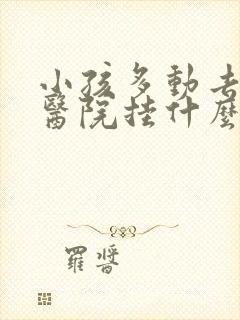 小孩多動去
醫院挂什麼
羅醬